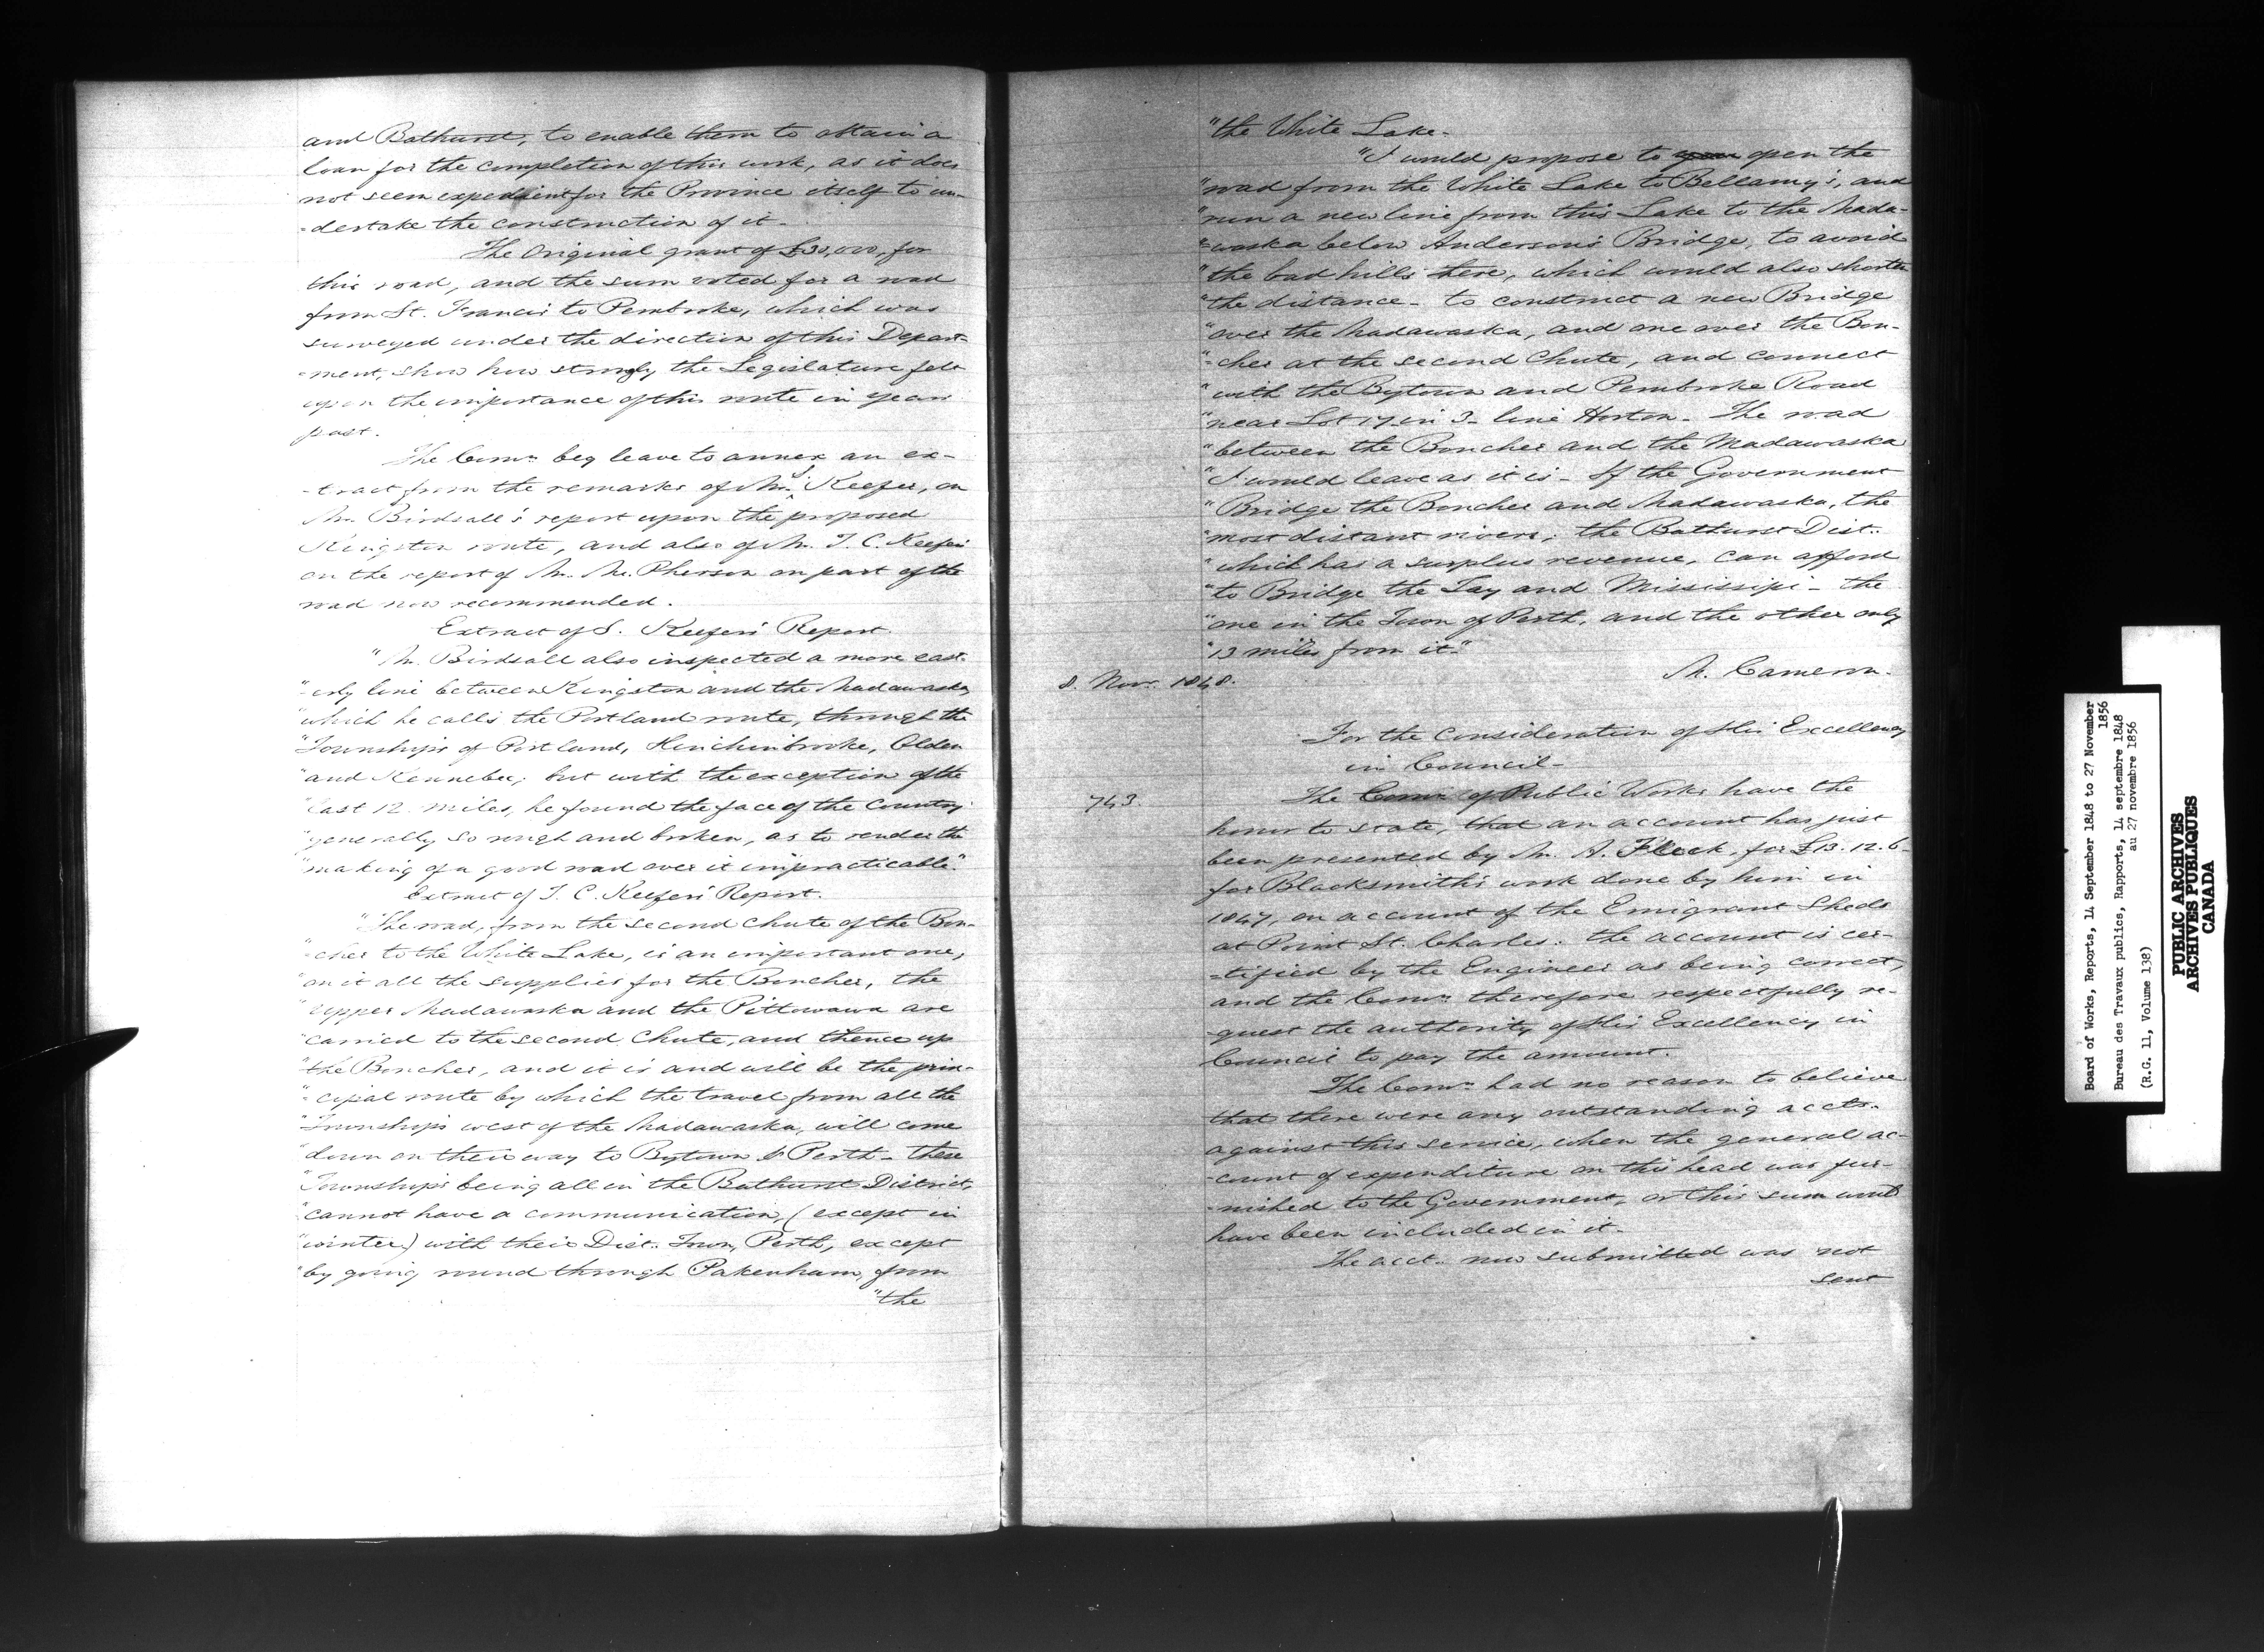 and Bathurst, to enable them to obtain a
loan for the completion of this work, as it does
not seem expedient for the Province itself to un-
-dertake the construction of it.
The Original grant of £30,000, for
this road, and the sum voted for a road
from St. Francis to Pembroke, which was
surveyed under the direction of this Depart-
-ment, show how strongly the Legislature felt
upon the importance of this route in years
past.
The Comrs. beg leave to annex an ex-
-tract from the remarks of Mr. S. Keefer, on
Mr. Birdsall's report upon the proposed
Kingston route, and also of Mr. T. C. Keefer
on the report of Mr. Mc.Pherson on part of the
road now recommended.
Extract of S. Keefer's Report.
"Mr. Birdsall also inspected a more east-
"-erly line between Kingston and the Madawaska,
"which he calls the Portland route, through the
"Townships of Portland, Hinchinbrooke, Olden
"and Kennebec; but with the exception of the
"last 12 miles, he found the face of the Country
"generally so rough and broken, as to render the
"making of a good road over it impracticable."
Extract of T. C. Keefer's Report.
"The road, from the second Chute of the Bon-
"-cher to the White Lake, is an important one,
"on it all the supplies for the Boncher, the
"upper Madawaska and the Pittowawa are
"carried to the second Chute, and thence up
"the Boncher, and it is and will be the prin-
"-cipal route by which the travel from all the
"Townships west of the Madawaska, will come
"down on their way to Bytown & Perth - these
"Townships being all in the Bathurst District,
"cannot have a communication, (except in
"winter) with their Dist. Town, Perth, except
"by going round through Pakenham, from
"the
"the White Lake.
"I would propose to open the
"road from the White Lake to Bellamy's, and
"run a new line from this Lake to the Mada-
"-waska below Anderson's Bridge, to avoid
"the bad hills there, which would also shorten
"the distance - to construct a new Bridge
"over the Madawaska, and one over the Bon-
"-cher at the second Chute, and connect
"with the Bytown and Pembroke Road
"near Lot 17 in 3 line Horton - The road
"between the Boncher and the Madawaska
"I would leave as it is - If the Government
"Bridge the Boncher and Madawaska, the
"most distant rivers, the Bathurst Dist.
"which has a surplus revenue, can afford
"to Bridge the Tay and Mississipi - the
"one in the Town of Perth, and the other only
"13 miles from it."
M. Cameron.
8. Nov. 1848.
For the Consideration of His Excellency
in Council-
743.
The Comrs. of Public Works have the
honor to state, that an account has just
been presented by Mr. A. Fleck, for £13.12.6-
for Blacksmith's work done by him in
1847, on account of the Emigrant Sheds
at Point St. Charles: the account is cer-
-tified by the Engineer as being correct,
and the Comrs. therefore respectfully re-
-quest the authority of His Excellency in
Council to pay the amount.
The Comrs. had no reason to believe
that there were any outstanding accts.
against this service, when the general ac-
-count of expenditure on this head was fur-
-nished to the Government, or this sum would
have been included in it.
The acct. now submitted was not
sent
Board of Works, Reports, 14 September 1848 to 27 November
1856
Bureau des Travaux publics, Rapports, 14 septembre 1848
au 27 novembre 1856
(R.G. 11, Volume 138)
PUBLIC ARCHIVES
ARCHIVES PUBLIQUES
CANADA